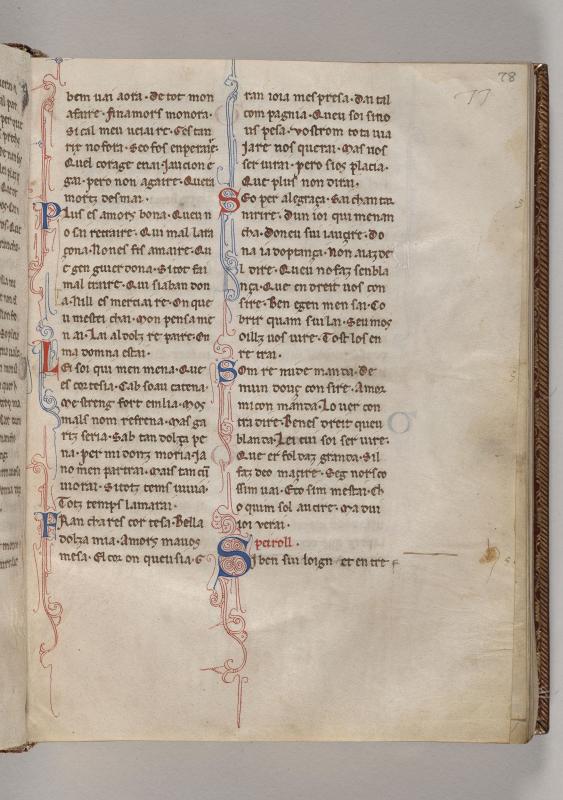 78
bem uai aora · de tot mon
afaire · finamors monora ·
Si cal meu ueiaire · Ges tan
rix no fora · Seo fos enperaire
Quel corage enai · Jaucion e
gai · pero non agaire · Quera
mortz desmai ·
Plus es amors bona · Queu n
o sai retraire · Qui mal lara
çona · Nones fis amaire · Qu
e gen guierdona · Si tot fai
mal traire · Qui siaban don
a · Nill es merciaire · On que
u mestei chai · Mon pensame
n ai · Lai al dolz repaire · On
ma domna estai ·
Lei soi qui men mena · Que
es cortesia · Cab soau catena ·
Me streng fort emlia · Mos
mals nom refrena · Mas ga
riz seria · Sab tan dolça pe
na · per mi donz moria · Ja
no men partrai · Mais tan cū
uiurai · Si totz tems uiuia ·
Totz temps lamarai ·
Fran chares cortesa · Bella
dolza mia · Amors mauos
mesa · El cor on queu sia · E
ran ioia mes presa · Dai tal
com pagnia · Queu soi sino
us pesa · vostrom tota uia
Jare nos querai · Mas uos
seruirai · pero sios placia ·
Que plus non dirai ·
Sso per alegraça · Gai chanta
nirire · Dun ioi qui menan
cha · Don eu sui iauçire · Do
na ia doptança · Non aiaz de
l dire · Queu no faz senbla
nça · Que en dreit uos con
sire · Ben egen men sai · Co
brir quam sui lai · Seu mos
oillz uos uire · Tost los en
retrai ·
Som re nu de manda · De
mun douç con sire · Amor
micon manda · Lo uer con
tra dire · Benes dreit queu
blanda · Lei cui soi ser uire ·
Que er fol daz granda · Sil
faz deo maçire · Seg nors co
ssim uai · Eto sim mestai · Ch
o quim sol aucire · Ma dui
ioi uerai ·
peiroll ·
Si ben sui loign et entre